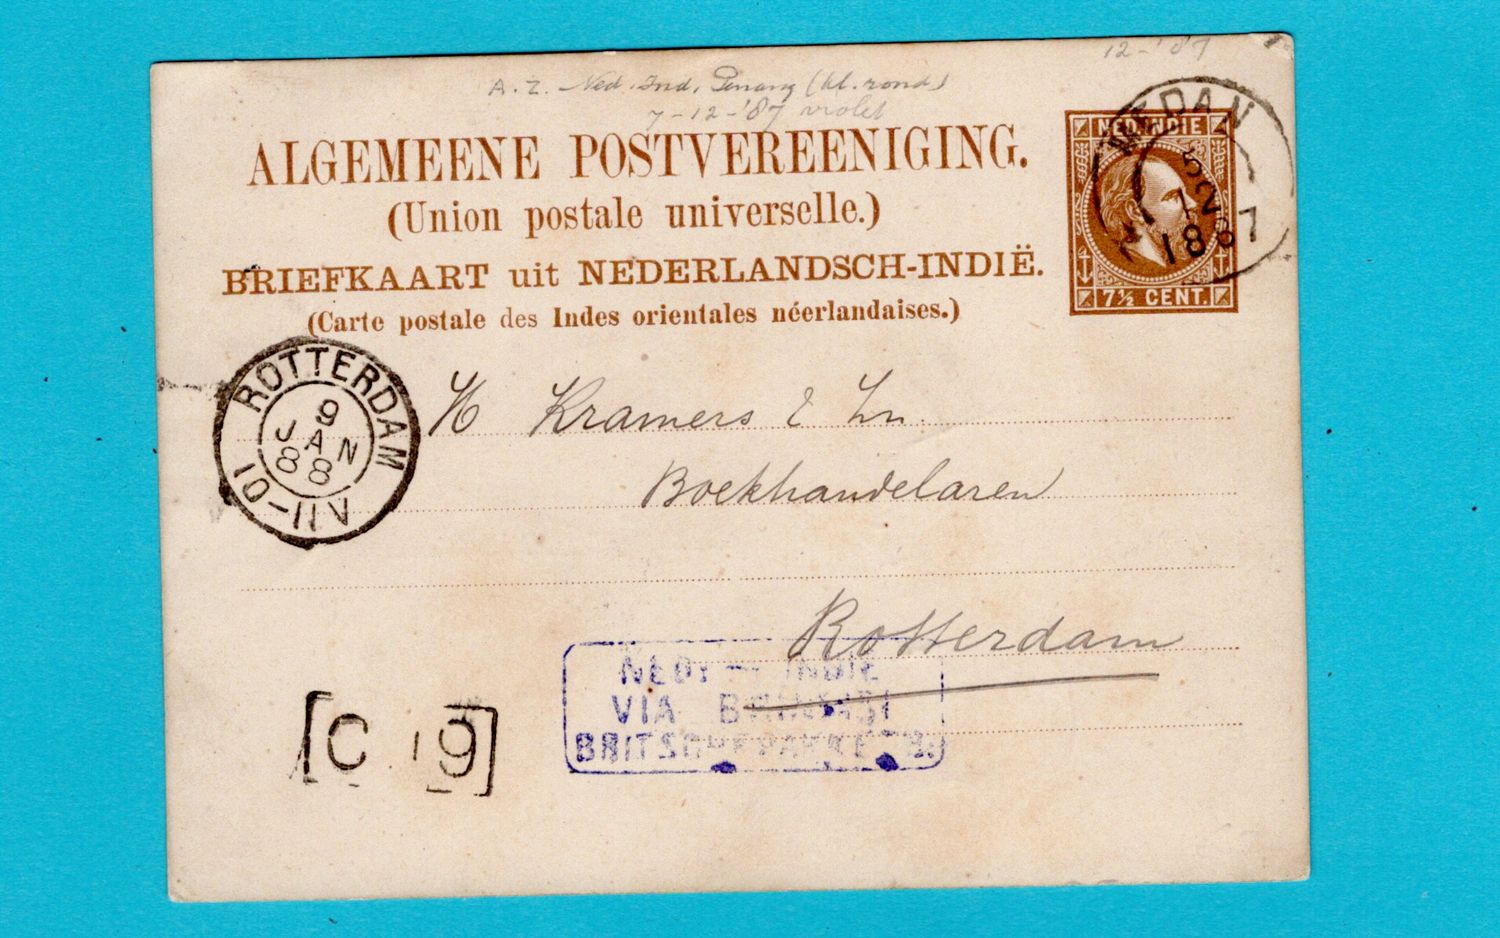 12-'87
A.Z. Ned. Ind. Penang (kl. rond)
7-12-'87 violet
ALGEMEENE POSTVEREENIGING.
(Union postale universelle.)
BRIEFKAART uit NEDERLANDSCH-INDIË.
(Carte postale des Indes orientales néerlandaises.)
NED. INDIE
7½ CENT.
MEDAN
5
12
1887
ROTTERDAM
9
JAN
88
10-11V
H Kramers & Zn.
Boekhandelaren
Rotterdam
NED: INDIE
VIA BRINDISI
BRITSCHE PAKKETB.
[C 19]